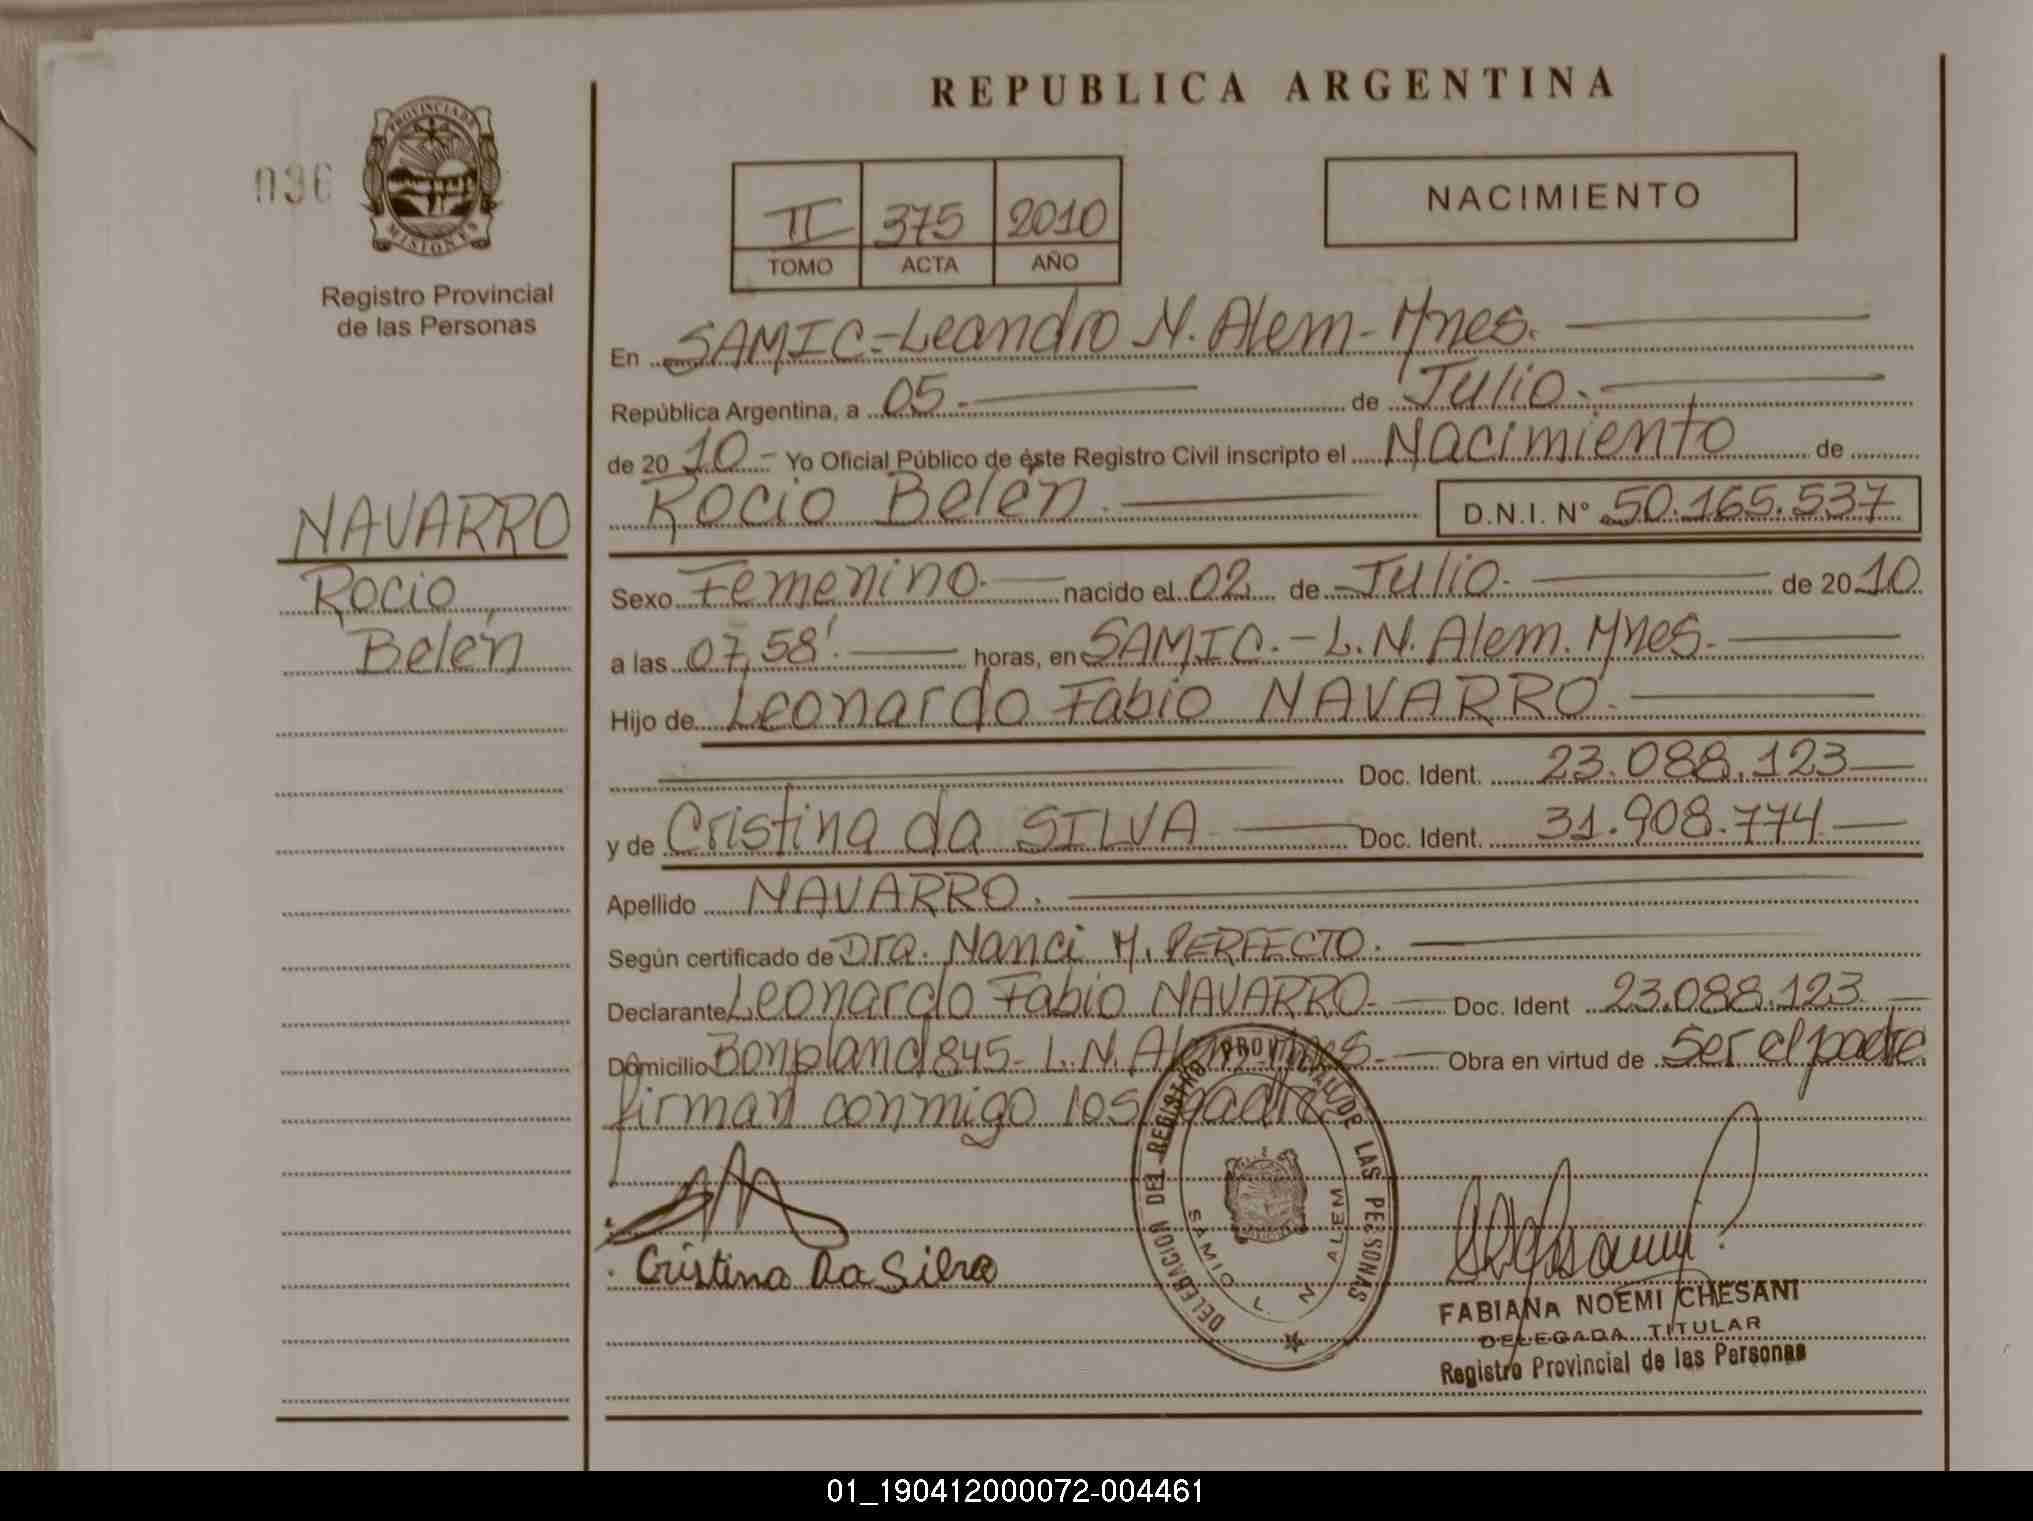 REPUBLICA ARGENTINA
036
PROVINCIA DE
MISIONES
Registro Provincial
de las Personas
II 375 2010
TOMO ACTA AÑO
NACIMIENTO
En SAMIC-Leandro N. Alem-Mnes.
República Argentina, a 05 de Julio
de 20 10 Yo Oficial Público de éste Registro Civil inscripto el Nacimiento de
Rocio Belén D.N.I. N° 50.165.537
NAVARRO
Rocio
Belén
Sexo Femenino nacido el 02 de Julio de 20 10
a las 07,58' horas, en SAMIC.-L.N. Alem. Mnes.
Hijo de Leonardo Fabio NAVARRO.
Doc. Ident. 23.088.123
y de Cristina da SILVA Doc. Ident. 31.908.774
Apellido NAVARRO.
Según certificado de Dra. Nanci M. PERFECTO.
Declarante Leonardo Fabio NAVARRO- Doc. Ident 23.088.123
Domicilio Bonpland 845- L.N. Alem-Mnes.- Obra en virtud de Ser el padre
firman conmigo los padres
Cristina Da Silva
DELEGACION DEL REGISTRO PROVINCIAL DE LAS PERSONAS
SAMIC L. N. ALEM
FABIANA NOEMI CHESANI
DELEGADA TITULAR
Registro Provincial de las Personas
01_190412000072-004461